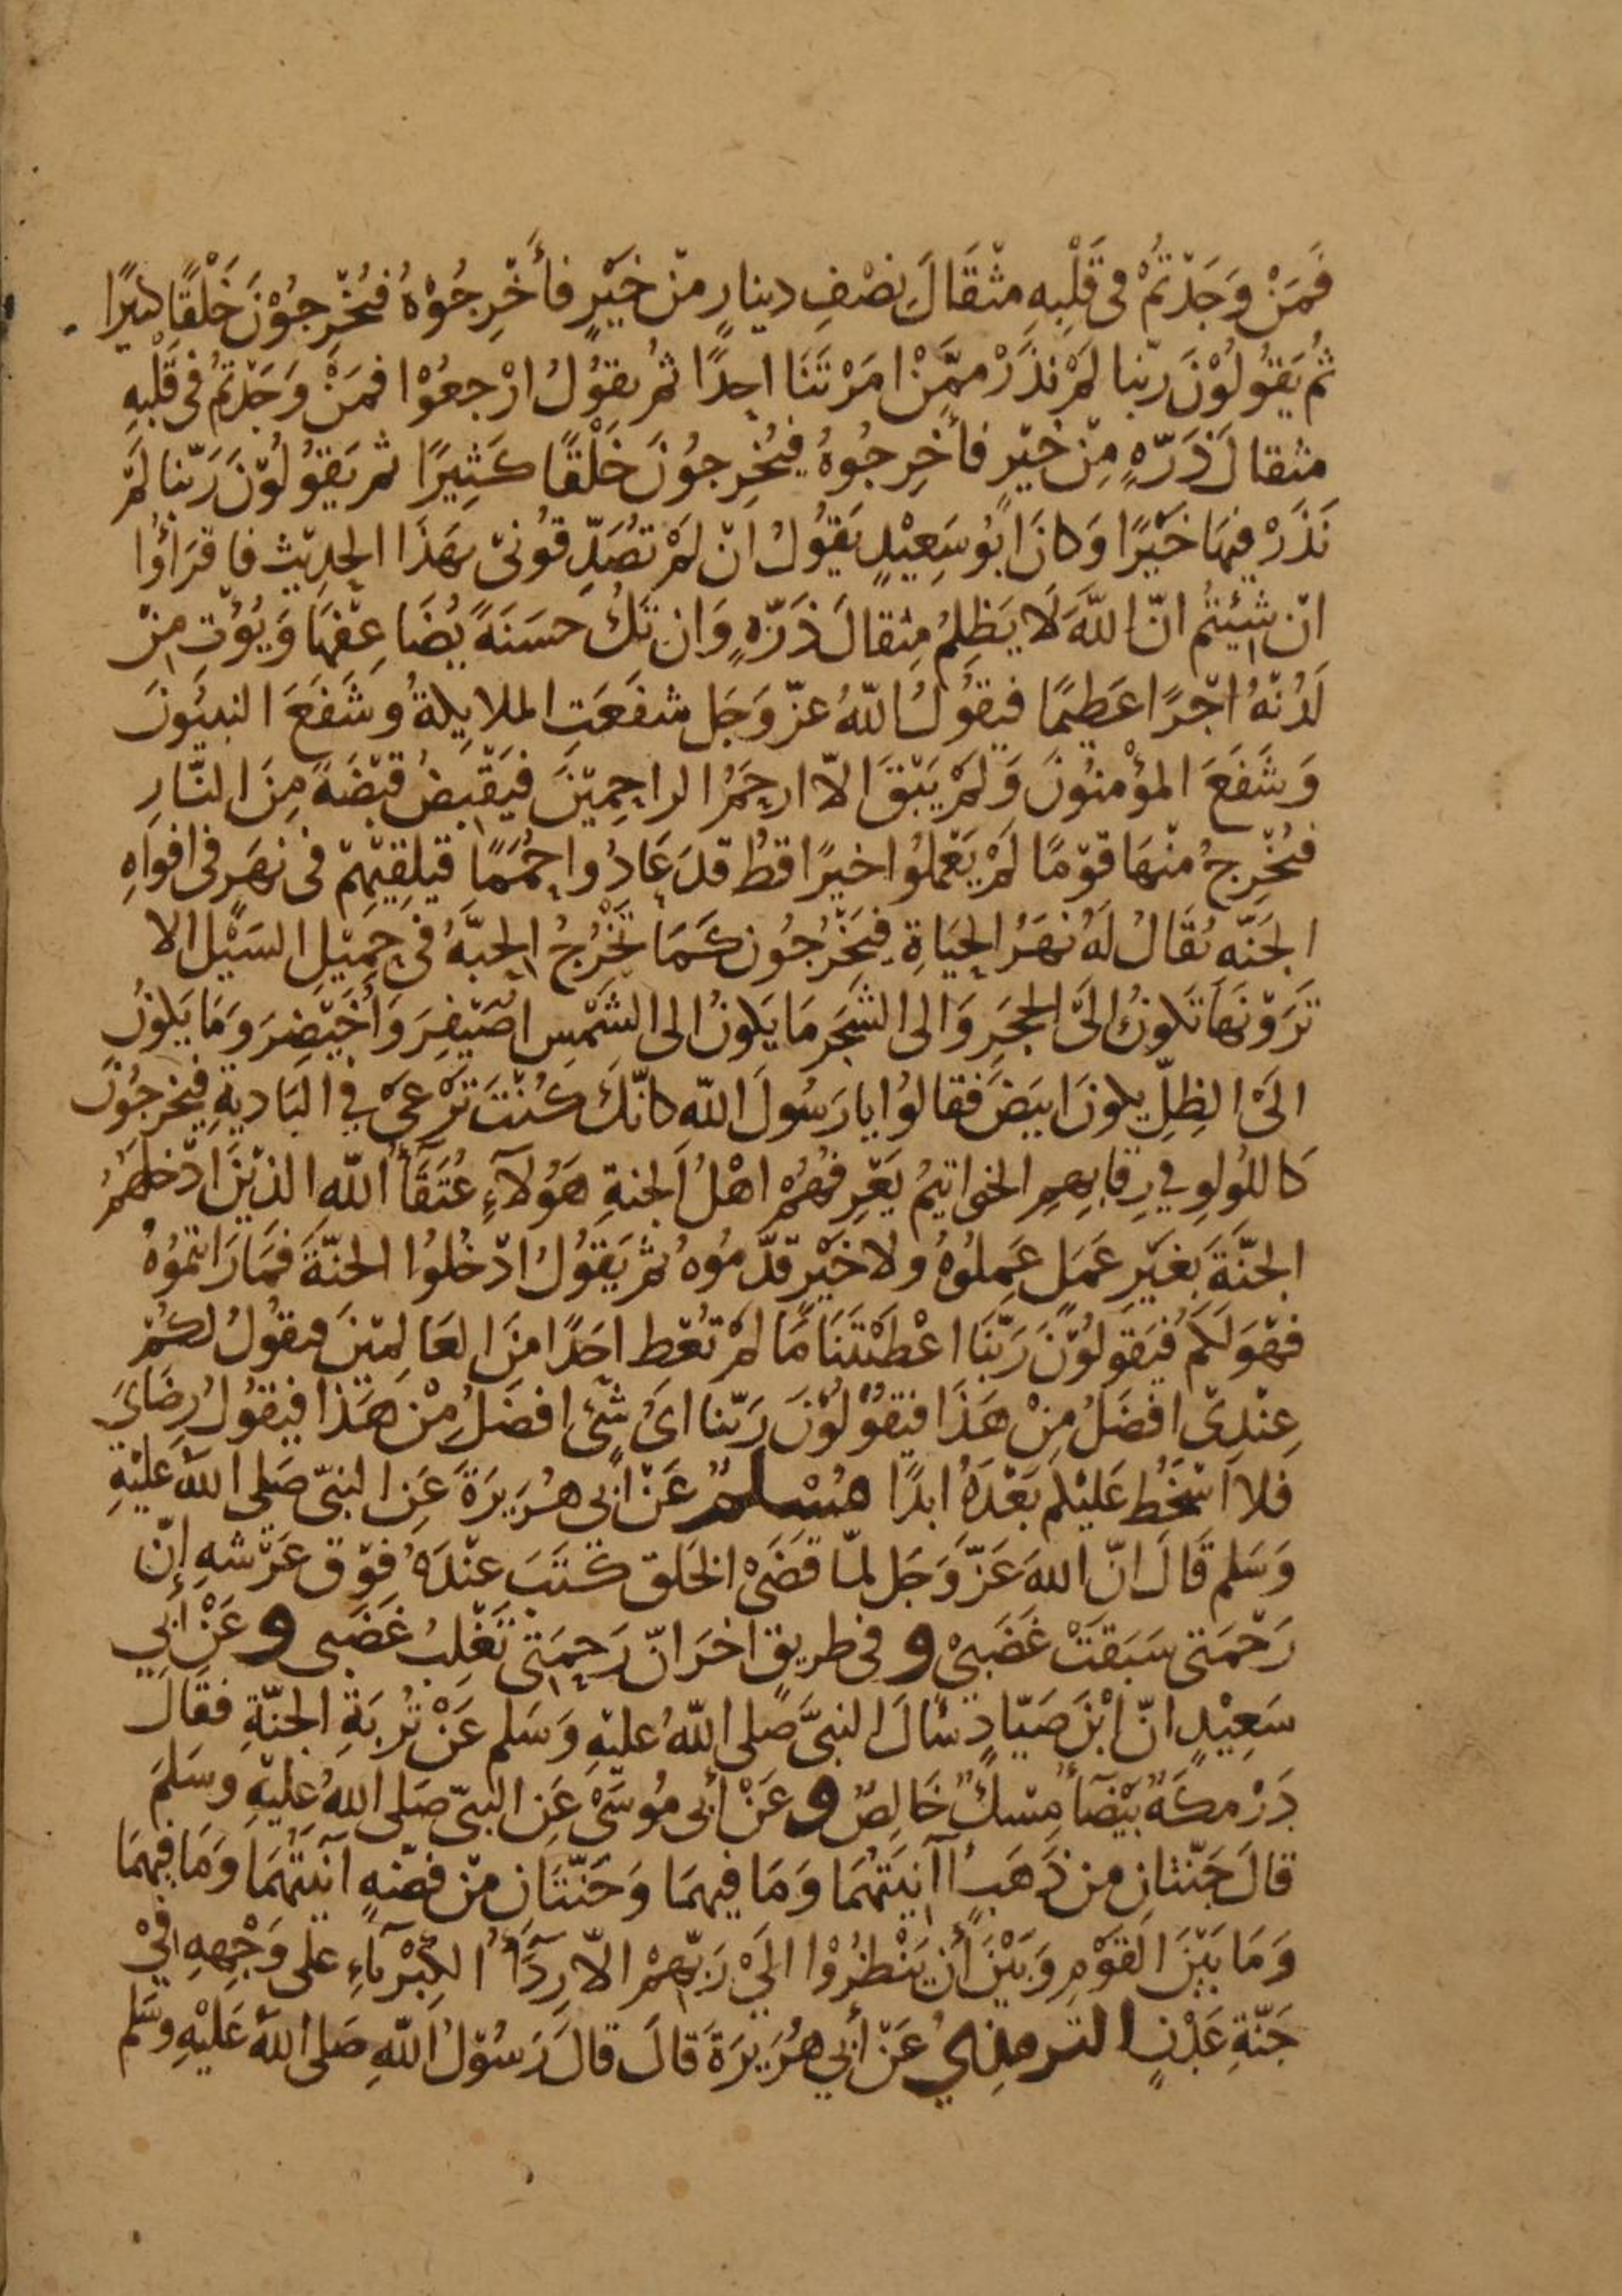 فَمَنْ وَجَدْتُمْ فى قَلْبِهِ مثْقَالَ نصْفِ دينارٍ منْ خَيْرٍ فأَخْرِجُوْهُ فيُخْرِجُوْنَ خَلْقًا كثيرًا
ثُم يَقُولُوْنَ ربّنا لمْ نذَرْ ممَّنْ امَرْتَنَا احدًا ثمُ يقوُلُ ارْجعُوْا فمَنْ وَجَدْتمُ فى قَلْبِهِ
مثقالَ ذَرّهٍ مِنْ خيْرٍ فأخرِجُوهُ فيُخرِجوُنَ خَلْقًا كَثِيرًا ثم يَقوُلوُنَ رَبّنا لمْ
نَذَرْ فيهَا خَيْرًا وَكانَ ابُو سَعِيْدٍ يَقوُلُ انْ لمْ تُصَدِّقوُنىْ بهَذَا الحدِيْث فاقرَأُوا
انْ شِيْتمُ انّ اللَّهَ لَا يَظلِمُ مِثقالَ ذَرّهٍ وَان تَكُ حسَنَةً يُضَاعِفْهَا وَيُوْتِ مِنْ
لَدُنْهُ اجْرًا عَظيمًا فيَقوُلُ اللّهُ عزّ وَجَل شفَعَتِ الملايِكةُ وشَفَعَ النبيُونَ
وَشَفَعَ المؤْمنوُنَ وَلَمْ يَبْقَ الاّ ارحَمُ الراحِمِيْنَ فيَقْبِضُ قبْضَةً مِنَ النَّارِ
فيُخْرِجُ منْهَا قوْمًا لَمْ يَعْملوُا خيرًا قطُ قدَ عَادُوا حُمَمًا فيلقِيْهِمْ فى نهَر فى افوَاهِ
الجَنّهِ يُقَالُ لَهُ نهَرُ الحيَاةِ فيَخْرُجُون كَمَا تَخْرُجُ الحِبَّهُ فى حمِيْلِ السَيْل الا
تَرَوْنَهَا تَكونُ الىَ الحجَرِ وَالى الشَجَر مَا يَكونُ الى الشَمْسِ اصَيْفِرَ وَاُخَيْضِرَ وَمَا يَكونُ
الَىْ الظِلِّ يكونَ ابيَضَ فقالوُا يا رَسُولَ اللّهِ كانّكَ كُنْتَ تَرْعىْ في البَاديةِ فيَخرُجوُنَ
كاللولوِ في رِقابِهِمِ الخواتيمُ يَعْرِفهُمْ اهْلُ الجنةِ هَوُلآءِ عُتَقَآُ اللّهِ الذيْنَ ادْخلَهُمُ
الجنّةَ بغَيْرِ عَمَلٍ عَمِلوُهُ ولا خَيْرٍ قدّمُوهُ ثم يَقوُلُ ادْخُلوُا الجنّةَ فَمَا رَايْتُموُهُ
فهْوَ لَكمْ فيَقوُلوُنَ رَبّنَا اعْطَيْتَنَا مَا لمْ تُعْطِ احَدًا منَ العَالِميْنَ فيقوُلُ لكُمْ
عِنْدِىْ افضَلُ مِنْ هَذَا فيَقوُلوُنَ رَبّنا اىُ شَىْءٍ افضَلُ مِنْ هَذَا فيَقوُلُ رِضَايَ
فلا اَسْخَطُ عَليْكمْ بَعْدَهُ ابدًا مُسْلمٌ عَنْ أبى هُرَيرَةَ عَنِ النبىّ صَلى اللهُ عَليْهِ
وَسَلم قَالَ انّ اللهَ عَزّ وَجَل لمّا قضَىْ الخلقَ كتَبَ عنْدَهُ فوْقَ عَرْشهِ إنّ
رَحْمَتى سَبَقَتْ غَضَبىْ و فى طريقٍ اخرَ انّ رَحمَتىْ تَغْلِبُ غضَبى و عَنْ أَبي
سَعِيْدٍ انّ ابْنَ صَيّادٍ سَألَ النبىَّ صَلى اللّهُ عليْهِ وَسَلم عَنْ تُربَةِ الجنّةِ فقَالَ
دَرْمكَةٌ بَيْضَآُ مِسْكٌ خَالِصٌ و عَنْ أَبى مُوسَىْ عَنِ النبيّ صَلى اللهُ عليْهِ وسَلمَ
قالَ جَنّتانِ من ذَهَبٍ آنيَتُهُمَا وَمَا فيهمَا وَجَنّتَانِ منْ فضّهٍ آنيَتُهُمَا وَمَا فيهِمَا
وَمَا بَيْنَ القوْمِ وَبَيْنَ أن يَنْظرُوْا الَىْ رَبّهِمْ الاّ رِدَآُ الكِبْرِيآءِ على وَجْهِهِ فىْ
جَنّةِ عَدْنٍ الترمذي عَنْ أَبي هُرَيرَةَ قَالَ قالَ رَسُوْلُ اللهِ صَلى اللهُ عَليْهِ وسَلم